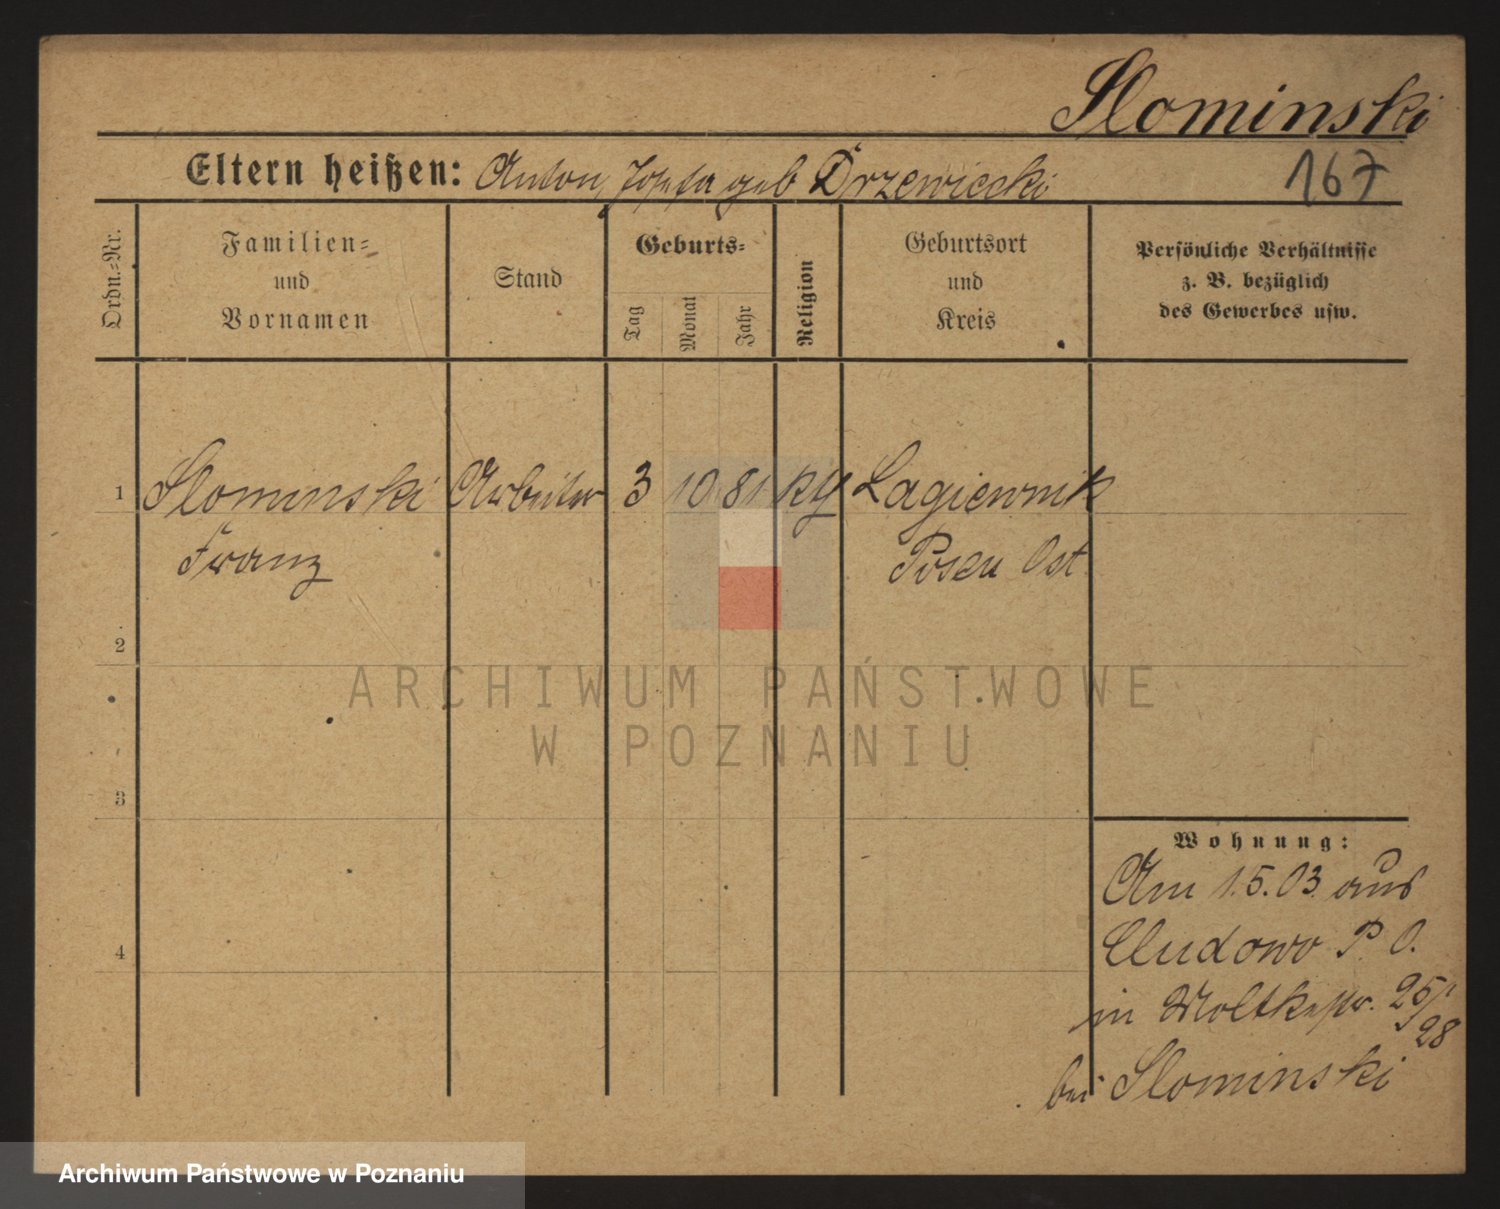 Slominski
Eltern heißen: Anton, Josefa geb Drzewiecki
167
Ordn.=Nr.
Familien=
und
Vornamen
Stand
Geburts=
Tag
Monat
Jahr
Religion
Geburtsort
und
Kreis
Persönliche Verhältnisse
z. B. bezüglich
des Gewerbes usw.
1 Slominski Arbeiter 3 10 81 Lagiewnik
Franz Posen Ost
2
3
4
ARCHIWUM PAŃSTWOWE
W POZNANIU
Wohnung:
Am 1.5.03 aus
P. O.
in Moltkestr. 25/
28
bei Slominski
Archiwum Państwowe w Poznaniu